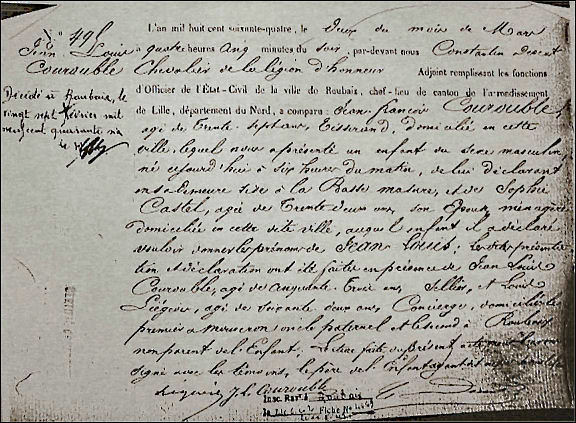 N° 491
Jean Louis
Courouble
Décédé à Roubaix, le
vingt sept février mil
neuf cent quarante
L'an mil huit cent soixante-quatre, le Deux du mois de Mars
à quatre heures cinq minutes du soir, par-devant nous Constantin Descat
Chevalier de la légion d'honneur Adjoint remplissant les fonctions
d'Officier de l'État-Civil de la ville de Roubaix, chef-lieu de canton de l'arrondissement
de Lille, département du Nord, a comparu Jean françois Courouble,
agé de Trente Sept ans, Tisserand, domicilié en cette
ville, lequel nous a présenté un enfant du sexe masculin,
né cejourd'hui à six heures du matin, de lui déclarant
en sa demeure sise à la Basse masure, et de Sophie
Castel, agée de Trente deux ans, son Épouse, ménagère
domiciliée en cette dite ville, auquel enfant il a déclaré
vouloir donner les prénoms de Jean Louis; Lesdites présenta-
tion et déclaration ont été faites en présence de Jean Louis
Courouble, agé de Cinquante Trois ans, Sellier, et Louis
Liégeois, agé de soixante deux ans, Concierge, domiciliés le
premier à Mouscron oncle paternel et le second à Roubaix
non parent de l'Enfant; Lecture faite du présent acte nous l'avons
signé avec les témoins, le père de l'Enfant ayant déclaré
J. L. Courouble
Insc. Rart à Roubaix
Fiche No